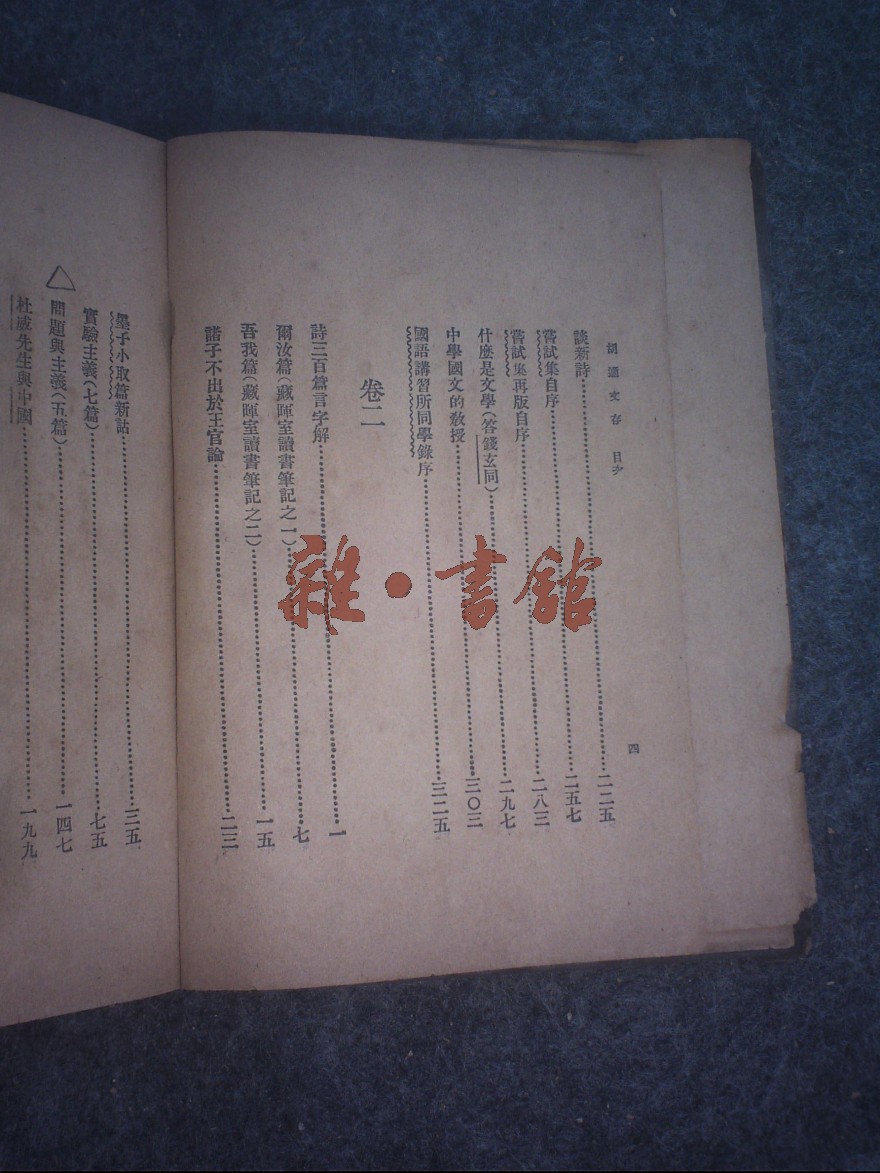 胡適文存 目次
四
談新詩………二二五
嘗試集自序………二五七
嘗試集再版自序………二八三
什麼是文學（答錢玄同）………二九七
中學國文的教授………三〇三
國語講習所同學錄序………三二五
卷二
詩三百篇言字解………一
爾汝篇（藏暉室讀書筆記之一）………七
吾我篇（藏暉室讀書筆記之二）………一五
諸子不出於王官論………二三
墨子小取篇新詁………三五
實驗主義（七篇）………七五
問題與主義（五篇）………一四七
杜威先生與中國………一九九
雜·書館